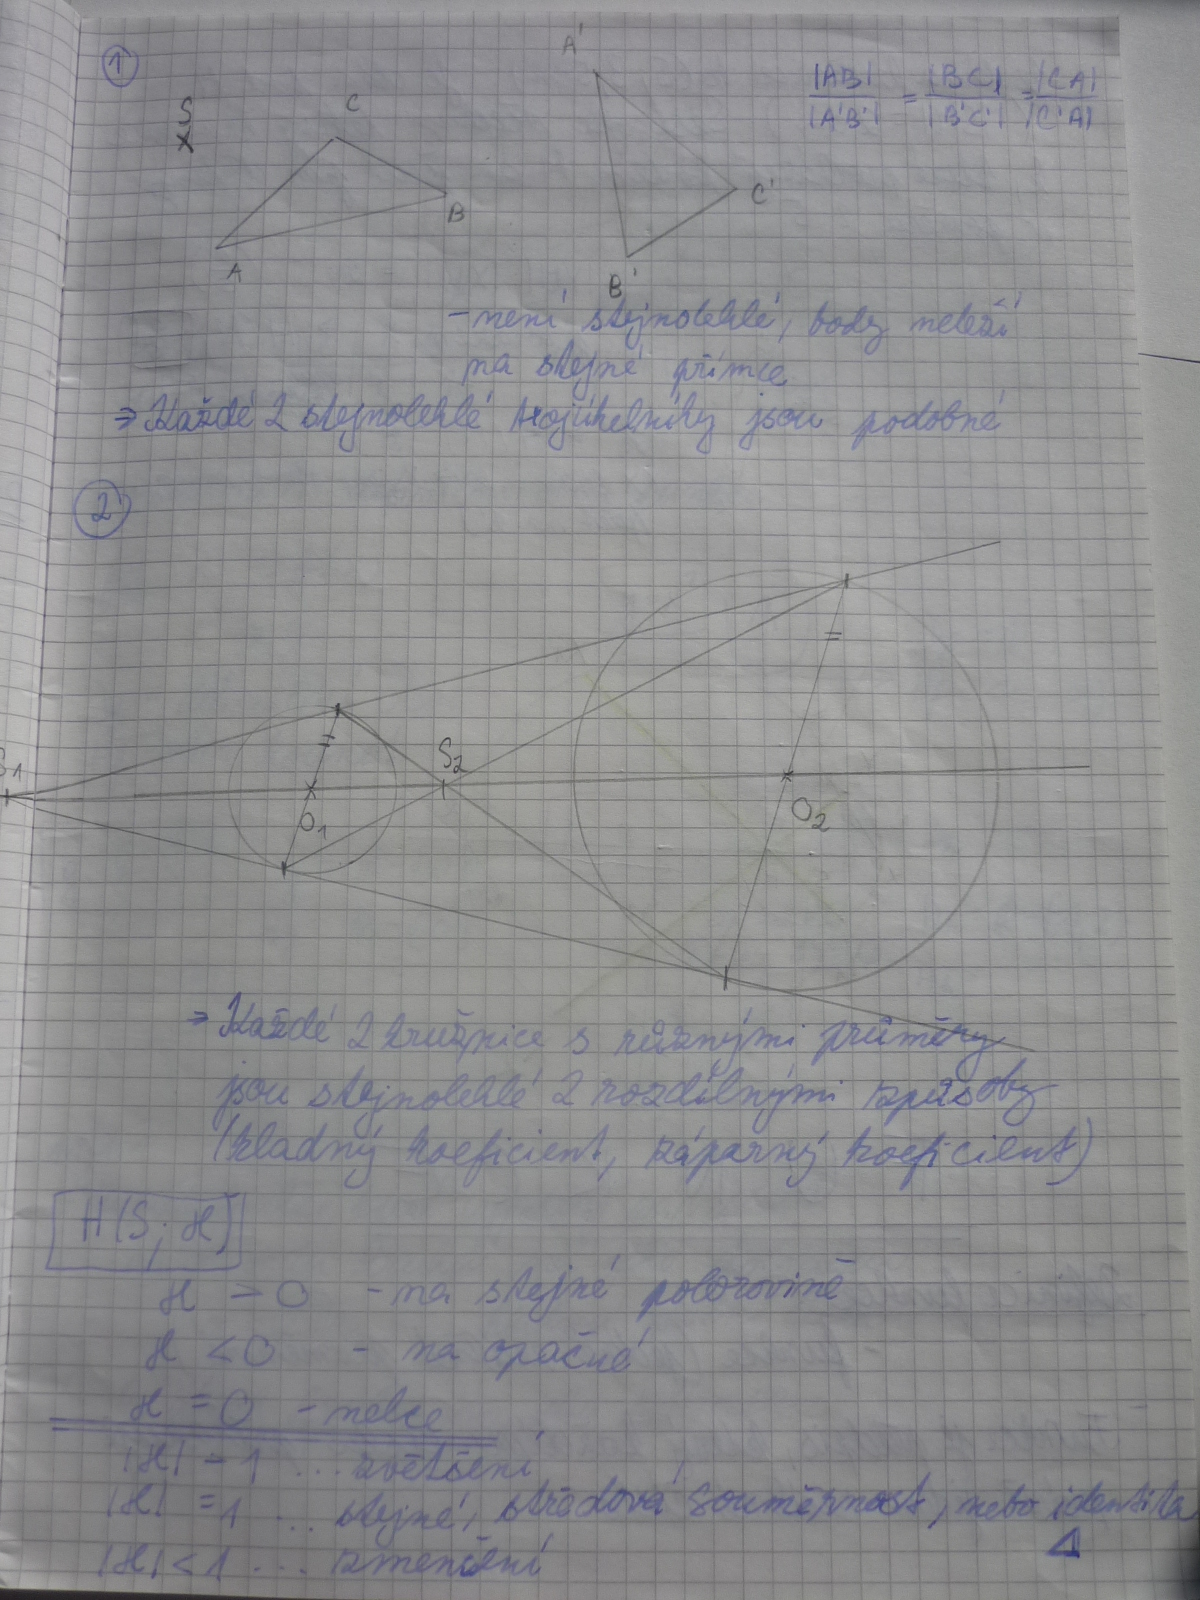 1
S
C
A'
|AB|/|A'B'| = |BC|/|B'C'| = |CA|/|C'A|
B
C'
A
B'
- není stejnolehlé, body neleží
na stejné přímce
⇒ Každé 2 stejnolehlé trojúhelníky jsou podobné
2
S1
S2
O1
O2
⇒ Každé 2 kružnice s různými průměry
jsou stejnolehlé 2 rozdílnými způsoby
(kladný koeficient, záporný koeficient)
H(S; ϰ)
ϰ > 0 - na stejné polorovině
ϰ < 0 - na opačné
ϰ = 0 - nelze
|ϰ| > 1 ... zvětšení
|ϰ| = 1 ... stejné, středová souměrnost, nebo identita
|ϰ| < 1 ... zmenšení